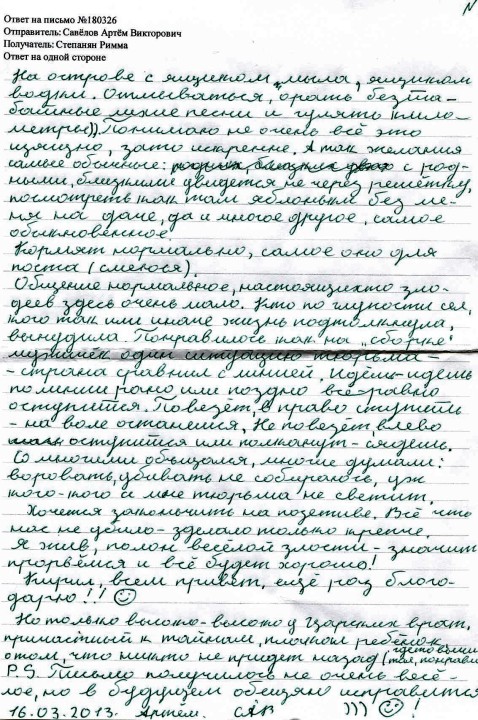 N
Ответ на письмо №180326
Отправитель: Савёлов Артём Викторович
Получатель: Степанян Римма
Ответ на одной стороне
На острове с ящиком мыла, ящиком
водки. Отмываться, орать безта-
батные песни и гулять кило-
метры)). Понимаю не очень всё это
изящно, зато искренне. А так желания
самые обычные: с род-
ными, близкими увидется не через решётку,
посмотреть как там яблоньки без ме-
ня на даче, да и многое другое, самое
обыкновенное.
Кормят нормально, самое оно для
поста (смеюся).
Общение нормальное, настоящихто зло-
деев здесь очень мало. Кто по глупости сел,
кого так или иначе жизнь подтолкнула,
вынудила. Понравилось как на „сборке"
мужичёк один ситуацию тюрьма-
-страна сравнил с линией. Идёшь-идёшь
по линии рано или поздно всё-равно
оступится. Повезёт, в право ступить
- на воле останешся, Не повезёт, влево
оступится или толкнут - сядешь.
Со многими общался, многие думали:
воровать, убивать не собираюсь, уж
кого-кого а мне тюрьма не светит.
Хочется закончить на позетиве. Всё что
нас не убило - зделало только крепче.
Я жив, полон весёлой злости - значит
прорвёмся и всё будет хорошо!
Кирил, всем привет, ещё раз благо-
дарю!!
Но только высоко-высоко у Царских врат,
примастный к тайнам, плачкал ребёнок
о том, что никто не придет назад (где то выши
тал, понрави
P.S. Письмо получилось не очень весё-
лое, но в будущем обещаю исправится
16.03.2013. Артём. САВ ))) !